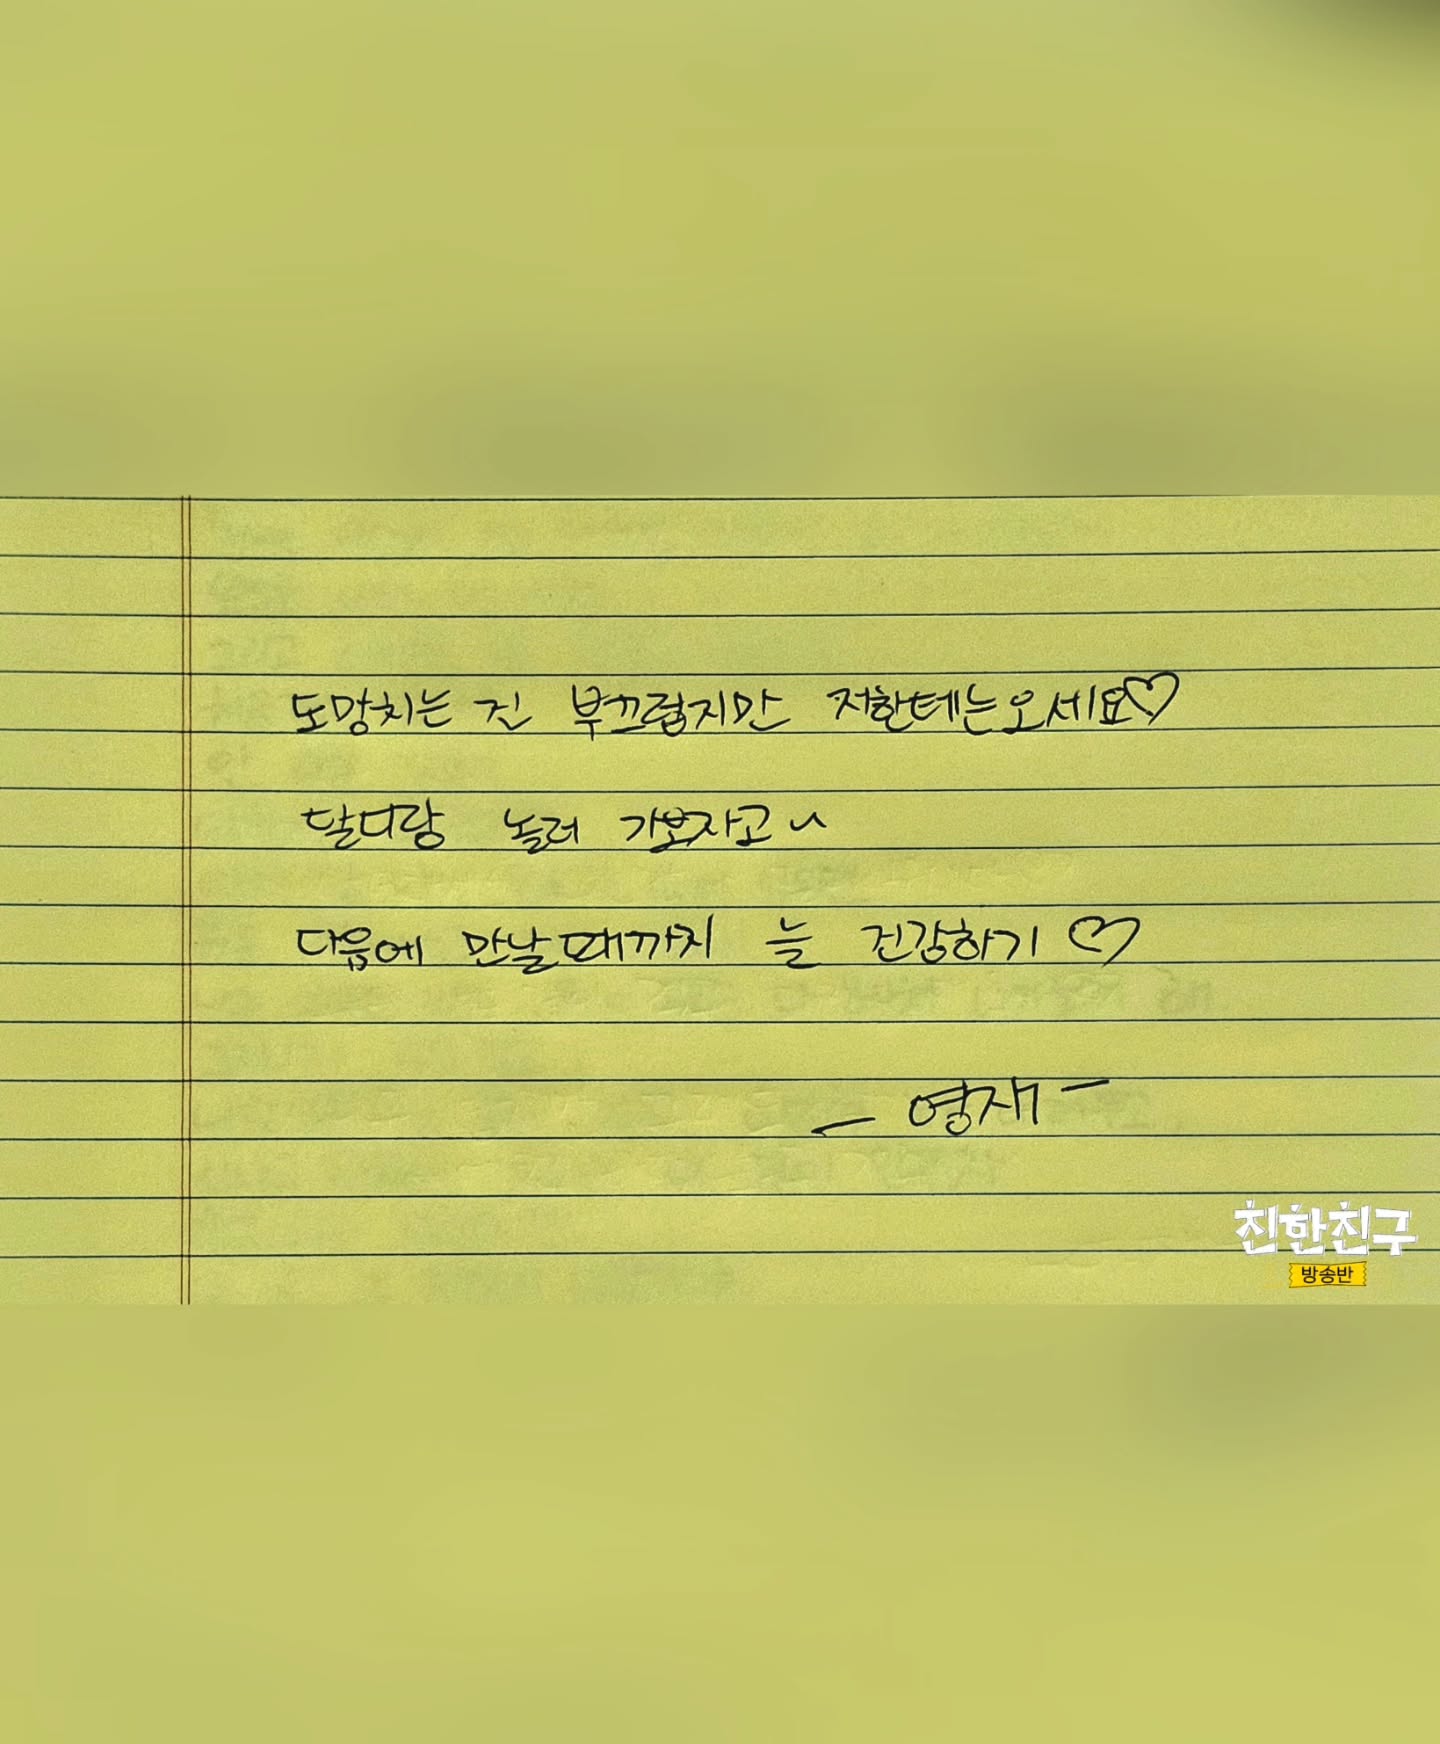 도망치는 건 부끄럽지만 저한테는오세요♡
달디랑 놀러 가보자고~
다음에 만날때까지 늘 건강하기♡
- 영재 -
친한친구
방송반